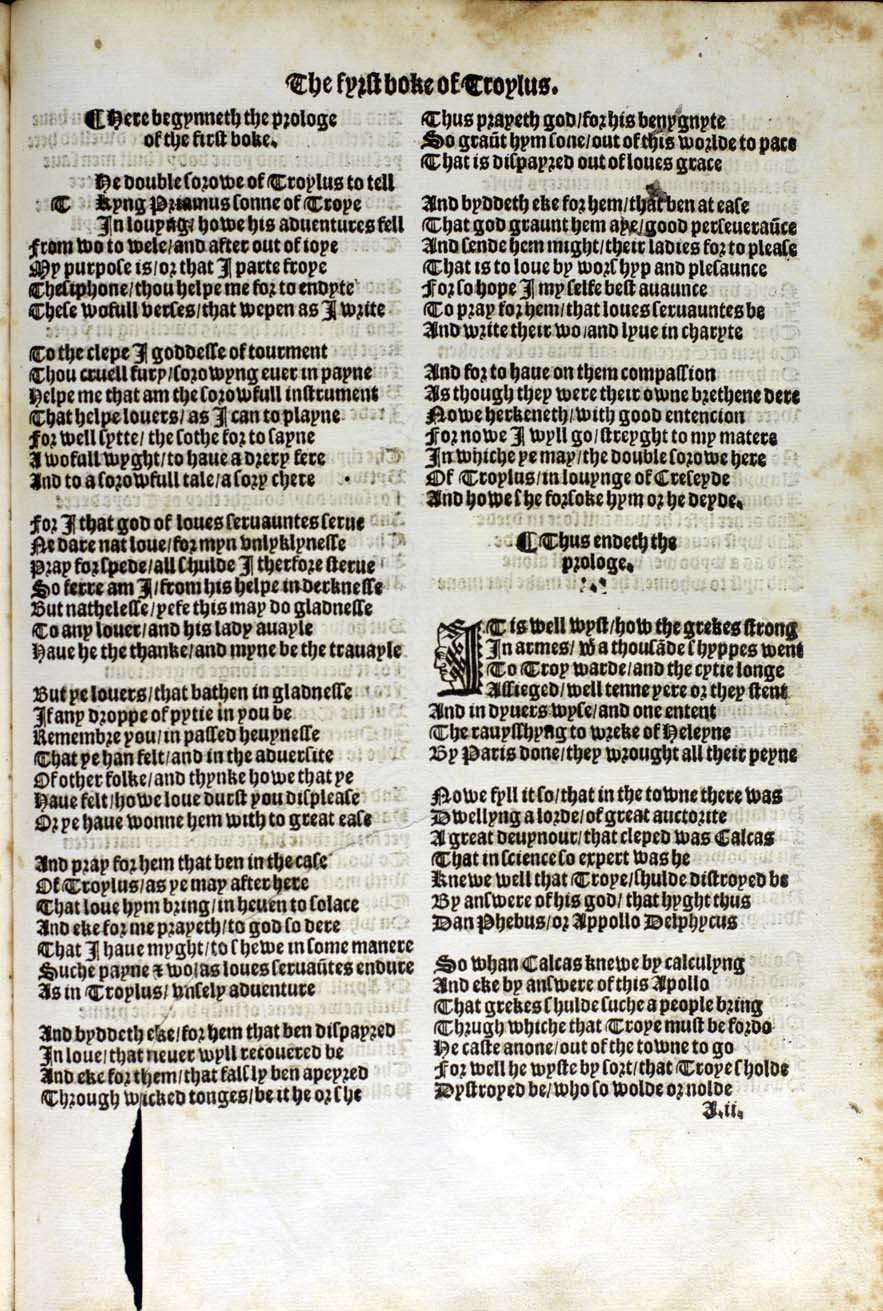 The fyrst boke of Troylus.
¶ Here begynneth the prologe
of the first boke.
He double sorowe of Troylus to tell
T Kyng Priamus sonne of Troye
In louyng/ howe his aduentures fell
From wo to wele/and after out of ioye
My purpose is/or that I parte froye
Thesiphone/thou helpe me for to endyte
These wofull verses/that wepen as I write
To the clepe I goddesse of tourment
Thou cruell fury/sorowyng euer in payne
Helpe me that am the sorowfull instrument
That helpe louers/ as I can to playne
For well sytte/ the sothe for to sayne
A wofull wyght/to haue a drery fere
And to a sorowfull tale/a sory chere
For I that god of loues seruauntes serue
Ne dare nat loue/for myn vnlyklynesse
Pray for spede/all shulde I therfore sterue
So ferre am I/from his helpe in derknesse
But nathelesse/yefe this may do gladnesse
To any louer/and his lady auayle
Haue he the thanke/and myne be the trauayle
But ye louers/that bathen in gladnesse
If any droppe of pytie in you be
Remembre you/in passed heuynesse
That ye han felt/and in the aduersite
Of other folke/and thynke howe that ye
Haue felt/howe loue durst you displease
Or ye haue wonne hem with to great ease
And pray for hem that ben in the case
Of Troylus/as ye may after here
That loue hym bring/in heuen to solace
And eke for me prayeth/to god so dere
That I haue myght/to shewe in some manere
Suche payne & wo/as loues seruaũtes endure
As in Troylus/ vnsely aduenture
And byddeth eke/for hem that ben dispayred
In loue/that neuer wyll recouered be
And eke for them/that falsly ben apeyred
Through wicked tonges/be it he or she
Thus prayeth god/for his benygnyte
So graũt hym sone/out of this worlde to pace
That is dispayred out of loues grace
And byddeth eke for hem/that ben at ease
That god graunt hem aye/good perseueraũce
And sende hem might/their ladies for to please
That is to loue by worshyp and plesaunce
For so hope I my selfe best auaunce
To pray for hem/that loues seruauntes be
And write their wo/and lyue in charyte
And for to haue on them compassion
As though they were their owne brethene dere
Nowe herkeneth/with good entencion
For nowe I wyll go/streyght to my matere
In whiche ye may/the double sorowe here
Of Troylus/in louynge of Creseyde
And howe she forsoke hym or he deyde.
¶ Thus endeth the
prologe.
IT is well wyst/how the grekes strong
In armes/ wͭ a thousãde shyppes went
To Troy warde/and the cytie longe
Assieged/well tenne yere or they stent
And in dyuers wyse/and one entent
The rauysshyng to wreke of Heleyne
By Paris done/they wrought all their peyne
Nowe fyll it so/that in the towne there was
Dwellyng a lorde/of great auctorite
A great deuynour/that cleped was Calcas
That in science so expert was he
Knewe well that Troye/shulde distroyed be
By answere of his god/ that hyght thus
Dan Phebus/or Appollo Delphycus
So whan Calcas knewe by calculyng
And eke by answere of this Apollo
That grekes shulde suche a people bring
Thrugh whiche that Troye must be fordo
He caste anone/out of the towne to go
For well he wyste by sort/that Troye sholde
Dystroyed be/who so wolde or nolde
A.ii.